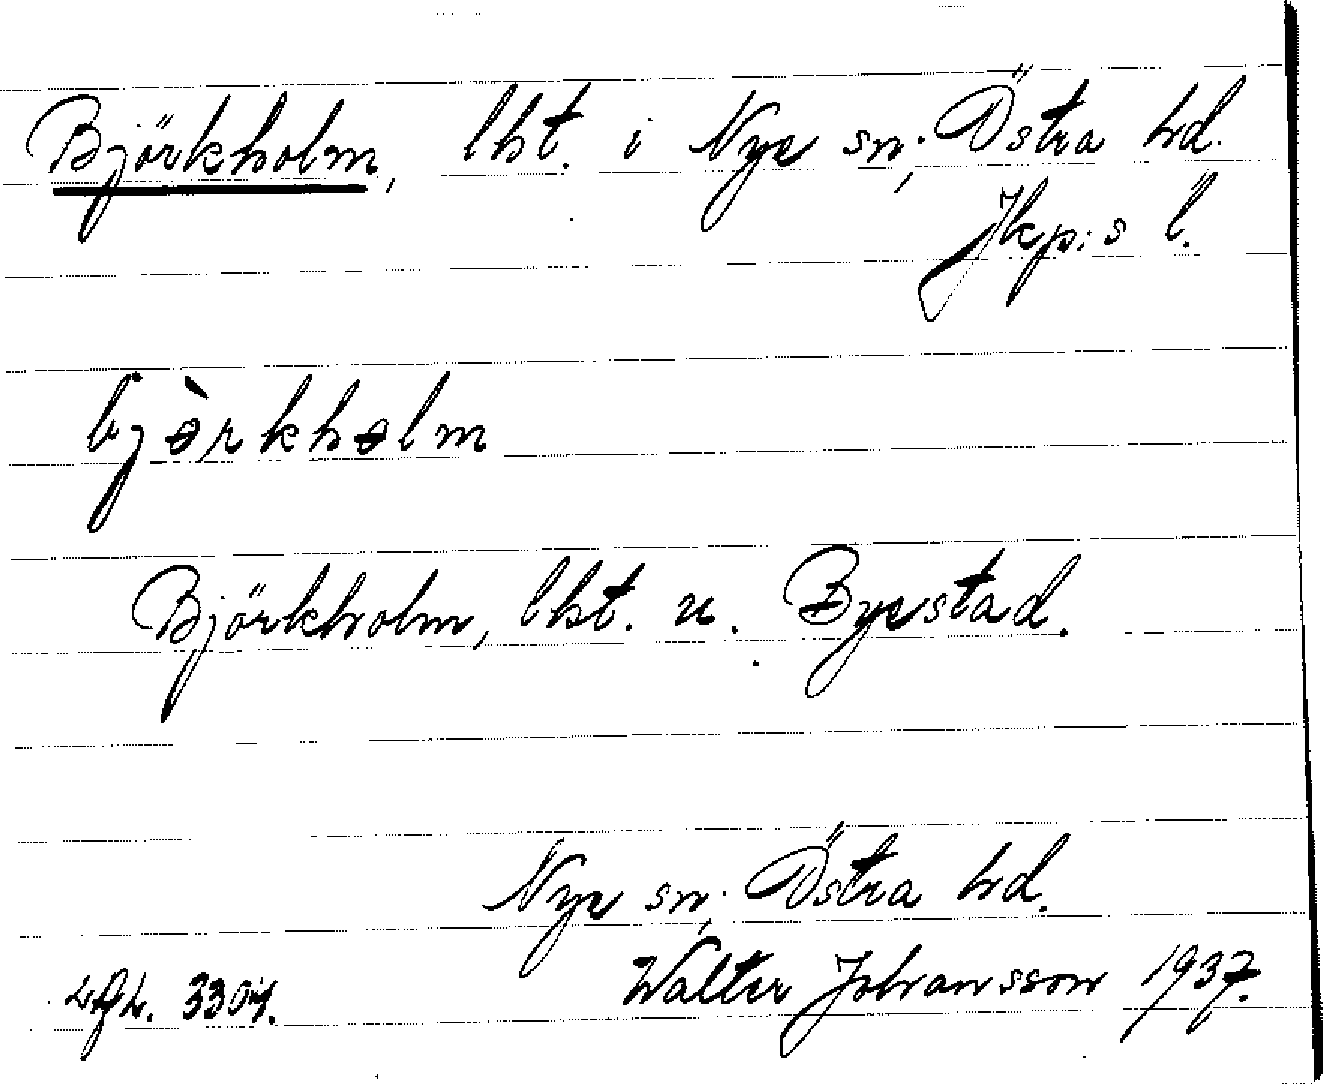 Björkholm, lht. i Nye sn; Östra hd.
Jkp:s l.
bjòrkholm
Björkholm, lht. u. Byestad.
Nye sn; Östra hd.
3304. Walter Johansson 1937.